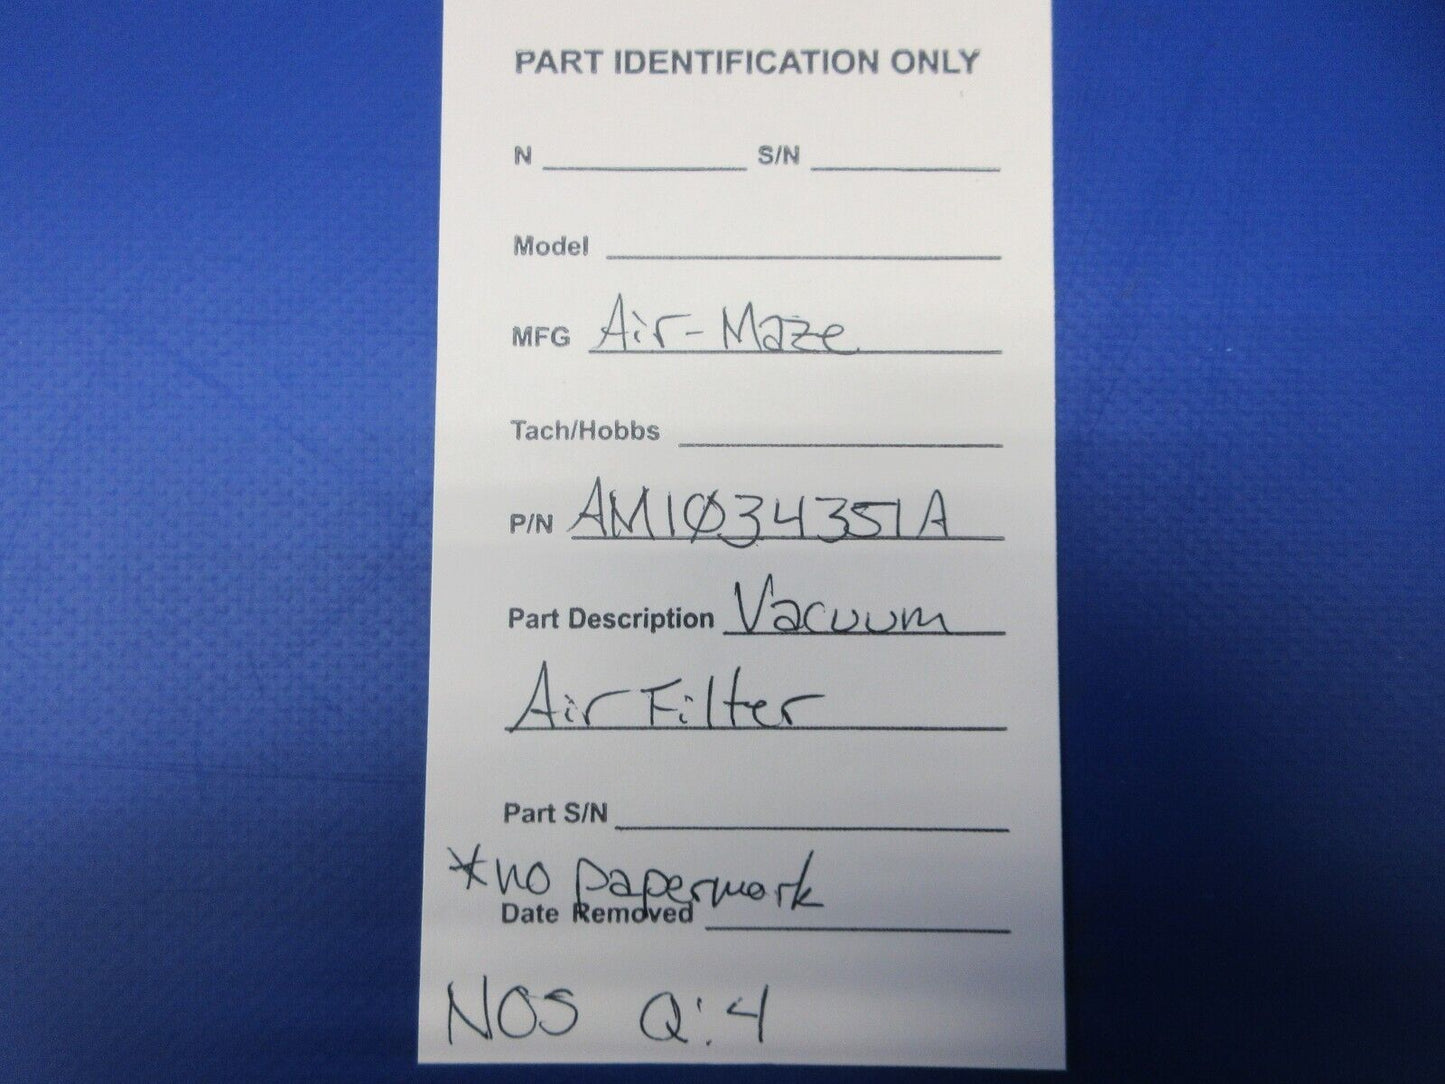 PART IDENTIFICATION ONLY
N S/N
Model
MFG Air-Maze
Tach/Hobbs
P/N AM1Ø34351A
Part Description Vacuum
Air Filter
Part S/N
*no paperwork
Date Removed
NOS Q:4